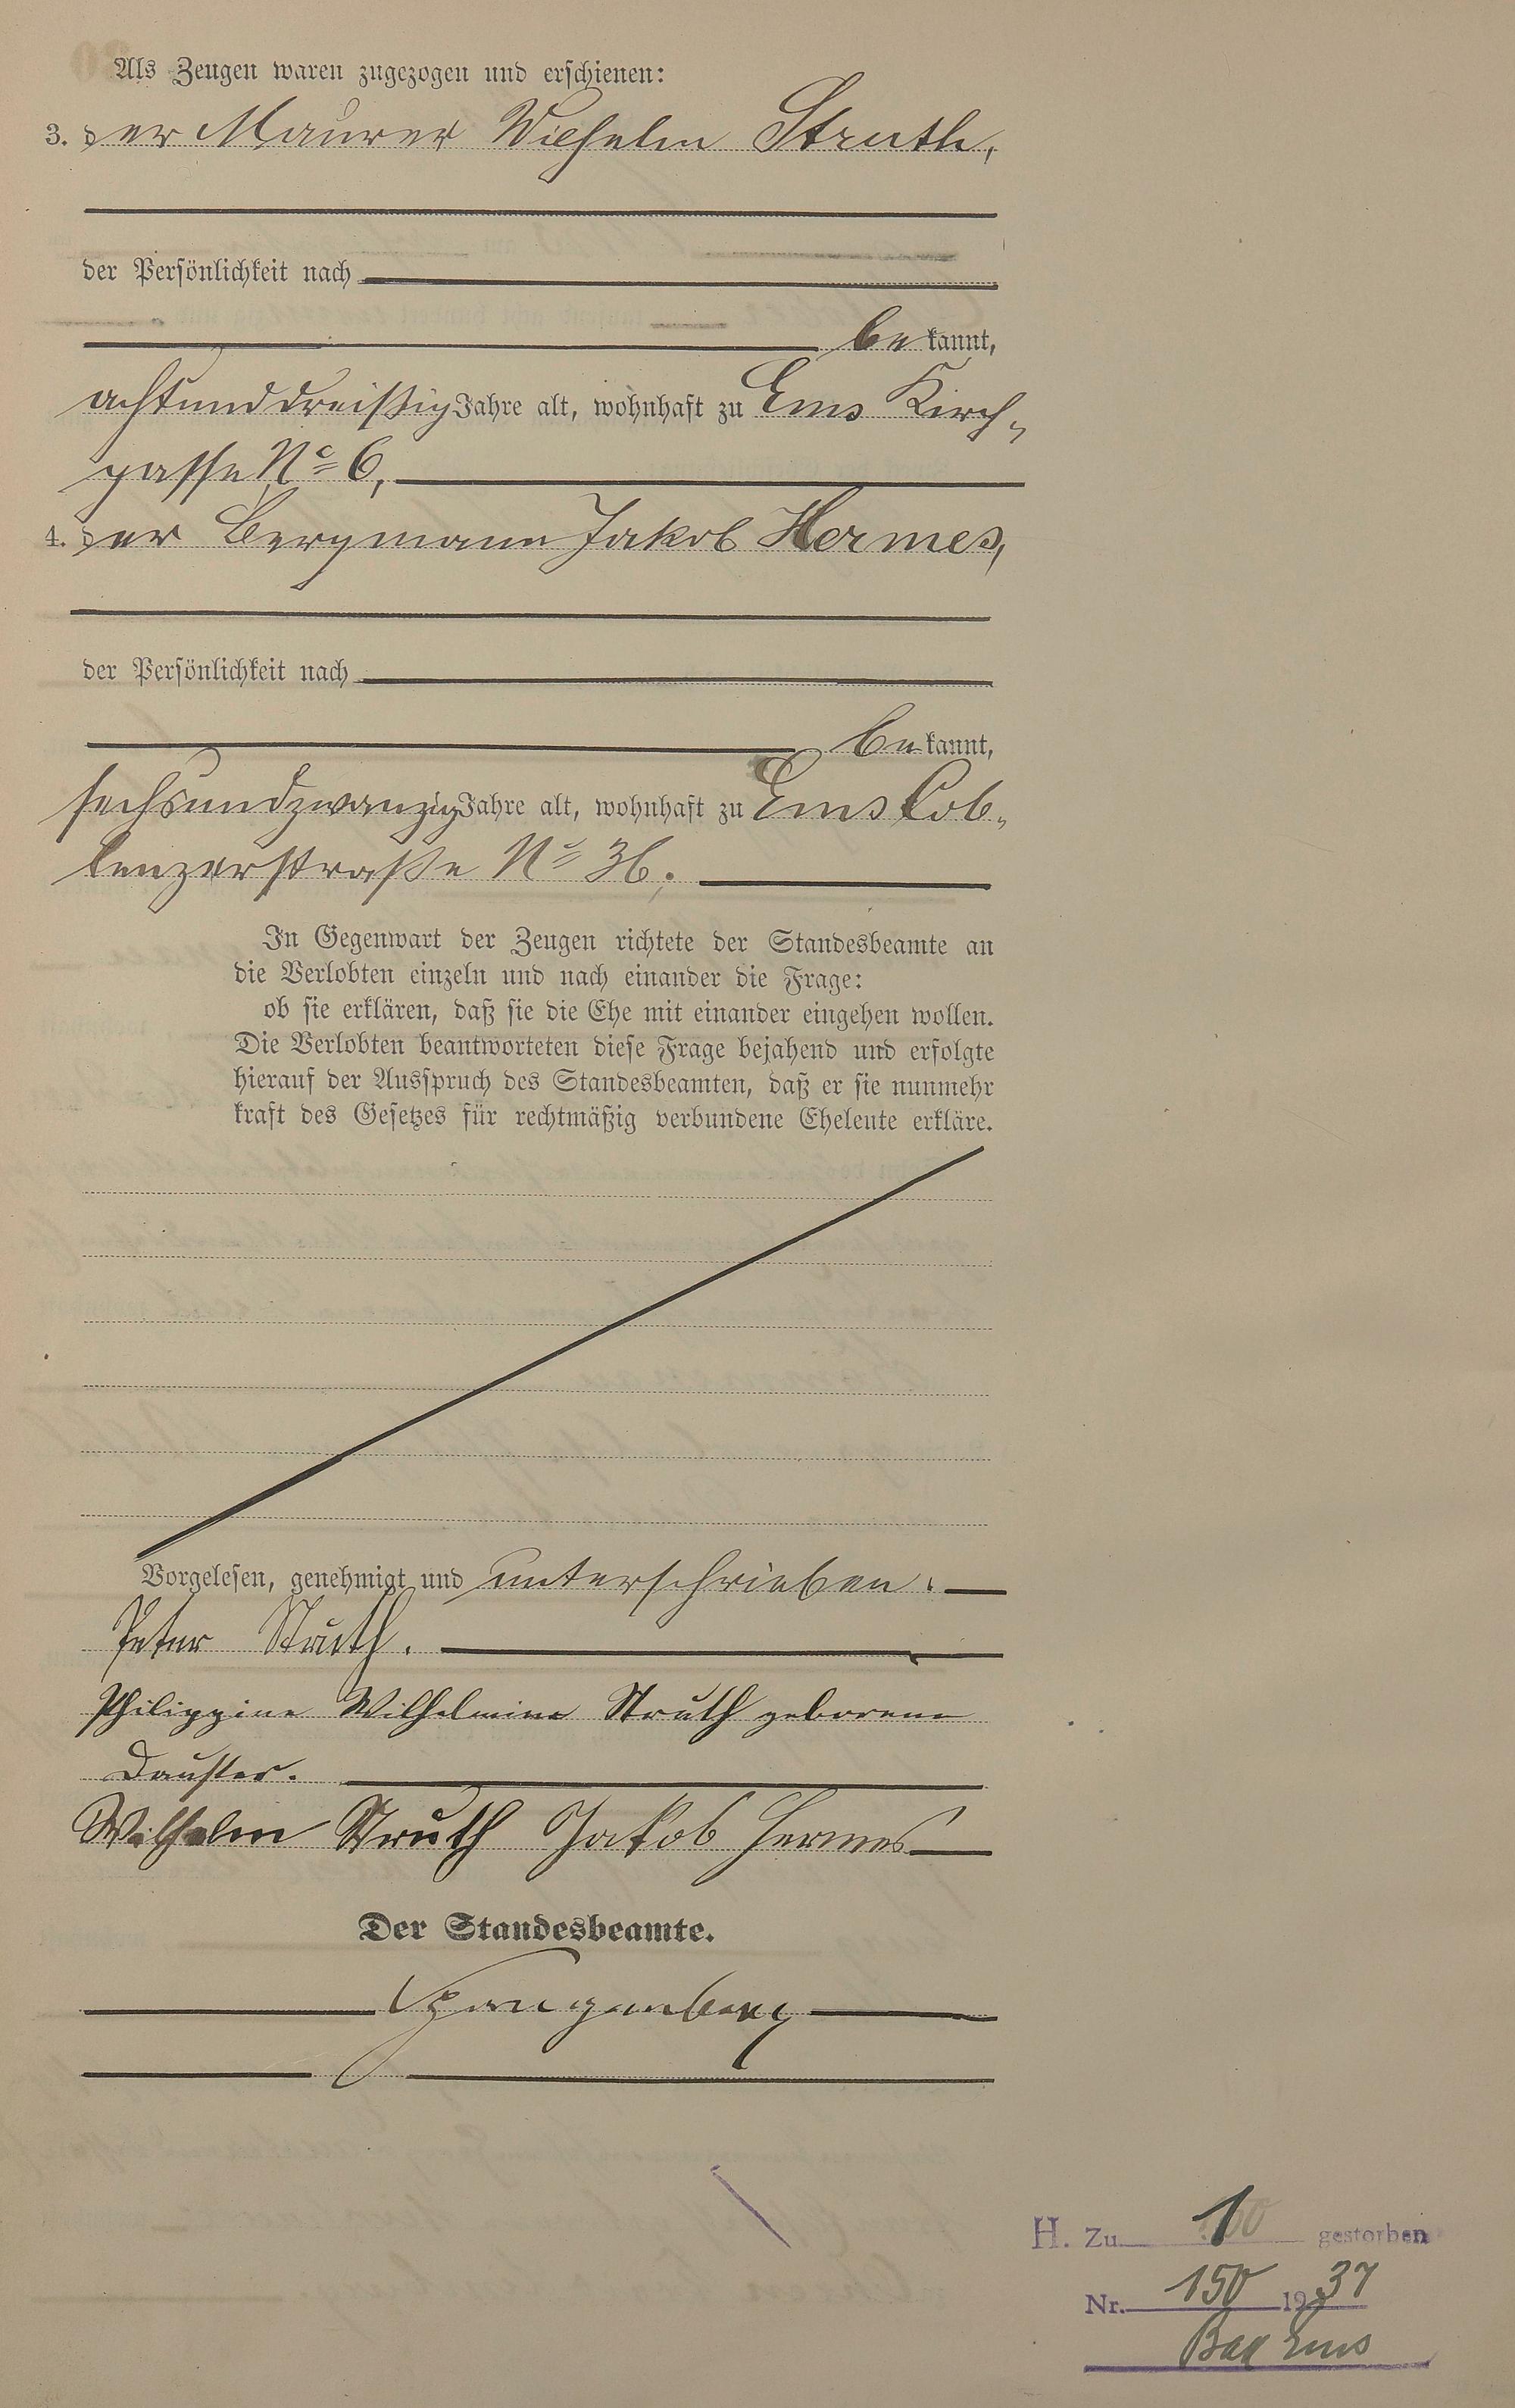 Als Zeugen waren zugezogen und erschienen:
3. der Maurer Wilhelm Struth,
der Persönlichkeit nach
be kannt,
achtunddreißig Jahre alt, wohnhaft zu Ems Kirch-
gasse No 6,
4. der Bergmann Jakob Hermes,
der Persönlichkeit nach
be kannt,
sechsundzwanzig Jahre alt, wohnhaft zu Ems Cob-
lenzerstraße No 36.
In Gegenwart der Zeugen richtete der Standesbeamte an
die Verlobten einzeln und nach einander die Frage:
ob sie erklären, daß sie die Ehe mit einander eingehen wollen.
Die Verlobten beantworteten diese Frage bejahend und erfolgte
hierauf der Ausspruch des Standesbeamten, daß er sie nunmehr
kraft des Gesetzes für rechtmäßig verbundene Eheleute erkläre.
Vorgelesen, genehmigt und unterschrieben.
Peter Struth.
Philippine Wilhelmine Struth geborene
Dauster.
Wilhelm Struth Jakob Hermes
Der Standesbeamte.
Spangenberg
H. Zu 1 gestorben
Nr. 150 1937
Bad Ems